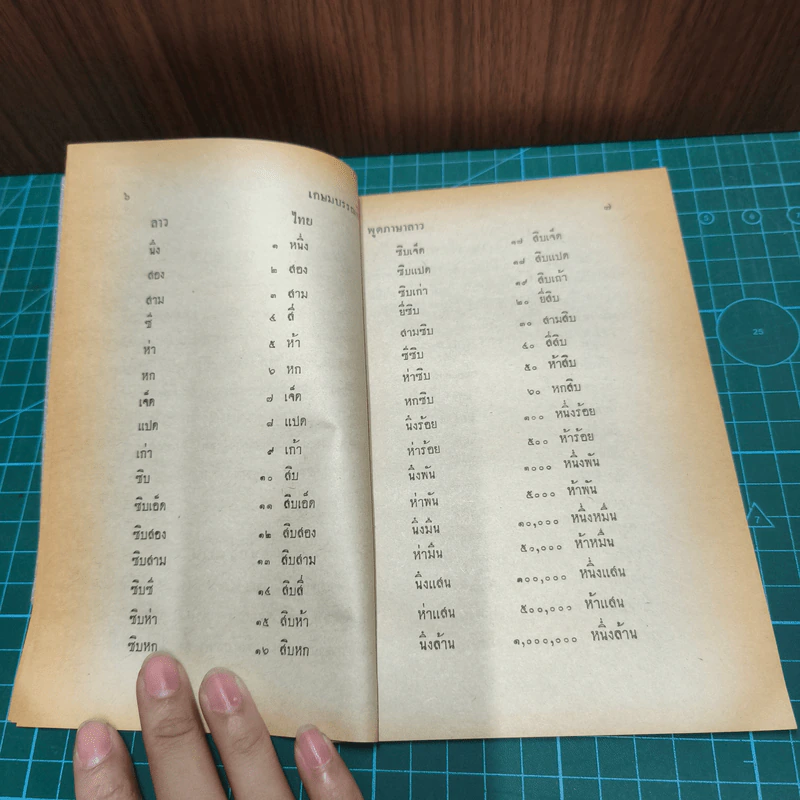 ๖ เกษมบรรณ
ลาว ไทย
นึ่ง ๑ หนึ่ง
สอง ๒ สอง
สาม ๓ สาม
ซี่ ๔ สี่
ห่า ๕ ห้า
หก ๖ หก
เจ็ด ๗ เจ็ด
แปด ๘ แปด
เก่า ๙ เก้า
ซิบ ๑๐ สิบ
ซิบเอ็ด ๑๑ สิบเอ็ด
ซิบสอง ๑๒ สิบสอง
ซิบสาม ๑๓ สิบสาม
ซิบซี่ ๑๔ สิบสี่
ซิบห่า ๑๕ สิบห้า
ซิบหก ๑๖ สิบหก
พูดภาษาลาว ๗
ซิบเจ็ด ๑๗ สิบเจ็ด
ซิบแปด ๑๘ สิบแปด
ซิบเก่า ๑๙ สิบเก้า
ยี่ซิบ ๒๐ ยี่สิบ
สามซิบ ๓๐ สามสิบ
ซี่ซิบ ๔๐ สี่สิบ
ห่าซิบ ๕๐ ห้าสิบ
หกซิบ ๖๐ หกสิบ
นึ่งร้อย ๑๐๐ หนึ่งร้อย
ห่าร้อย ๕๐๐ ห้าร้อย
นึ่งพัน ๑๐๐๐ หนึ่งพัน
ห่าพัน ๕๐๐๐ ห้าพัน
นึ่งมื่น ๑๐,๐๐๐ หนึ่งหมื่น
ห่ามื่น ๕๐,๐๐๐ ห้าหมื่น
นึ่งแสน ๑๐๐,๐๐๐ หนึ่งแสน
ห่าแสน ๕๐๐,๐๐๐ ห้าแสน
นึ่งล้าน ๑,๐๐๐,๐๐๐ หนึ่งล้าน
5 6
25
7